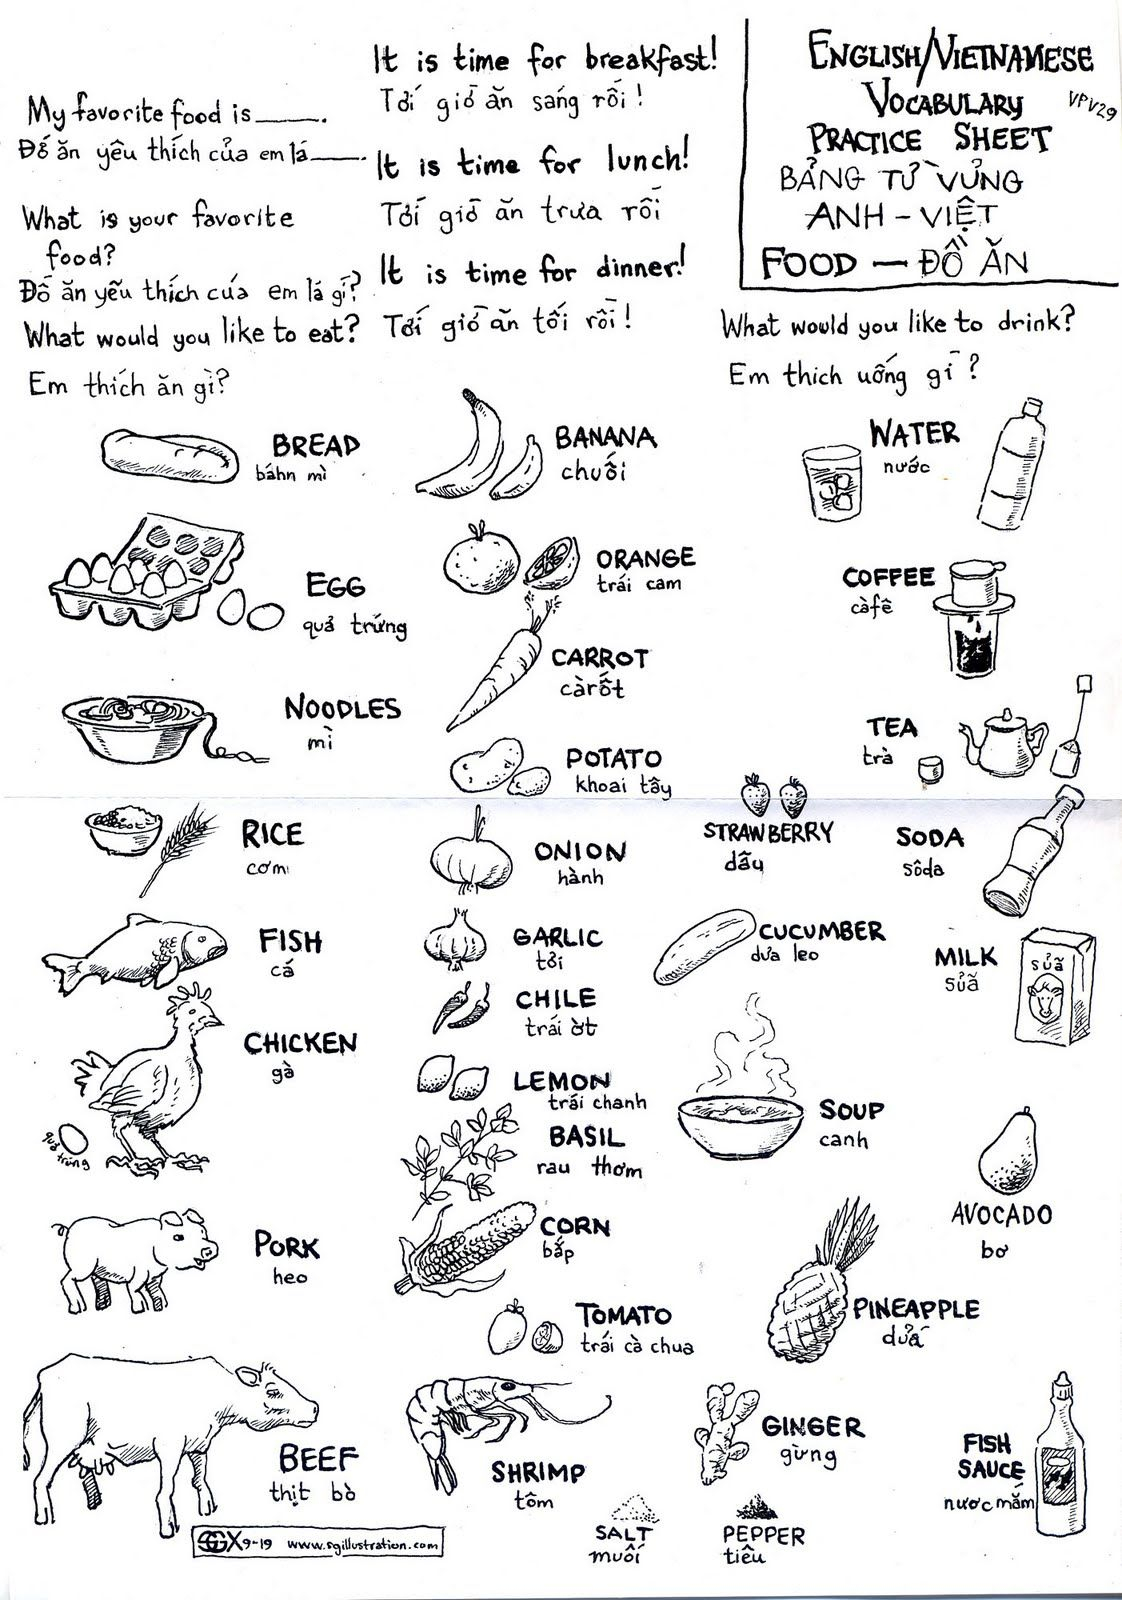 My favorite food is_____.
Đố ăn yêu thích của em lá_____.
What is your favorite
food?
Đồ ăn yếu thích cúa em lá gí?
What would you like to eat?
Em thích ăn gì?
It is time for breakfast!
Tới giò ăn sáng rối!
It is time for lunch!
Tới giò ăn trưa rối
It is time for dinner!
Tới giò ăn tối rồi!
ENGLISH/VIETNAMESE
VOCABULARY
VPV29
PRACTICE SHEET
BẢNG TỪ VỦNG
ANH - VIỆT
FOOD — ĐỒ ĂN
What would you like to drink?
Em thich uống gì?
BREAD
báhn mì
EGG
quả trứng
NOODLES
mì
RICE
cơm
FISH
cá
CHICKEN
gà
quả
trứng
PORK
heo
BEEF
thịt bò
BANANA
chuối
ORANGE
trái cam
CARROT
càrốt
POTATO
khoai tây
ONION
hành
GARLIC
tỏi
CHILE
trái ờt
LEMON
trái chanh
BASIL
rau thơm
CORN
bắp
TOMATO
trái cà chua
SHRIMP
tôm
SALT
muối
PEPPER
tiêu
STRAWBERRY
dẫu
CUCUMBER
dưa leo
SOUP
canh
PINEAPPLE
dứấ
GINGER
gừng
WATER
nước
COFFEE
càfê
TEA
trà
SODA
sôda
MILK
sủã
sủã
AVOCADO
bơ
FISH
SAUCE
nước mắm
SGX 9-19 www.sgillustration.com